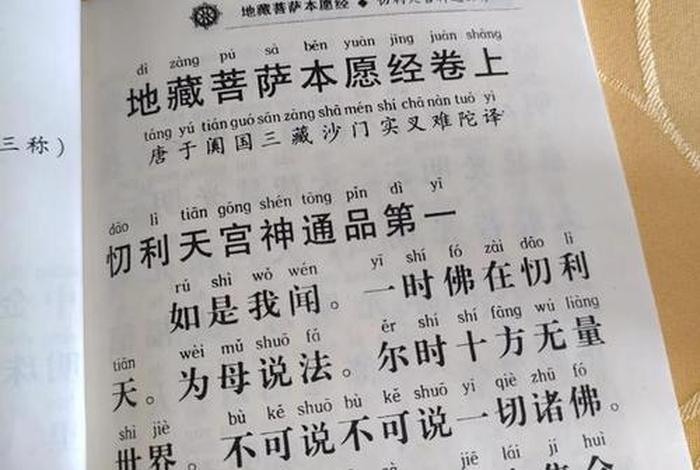 地藏菩萨本愿经
三称)
dì zàng pú sà běn yuàn jīng juàn shàng
地藏菩萨本愿经卷上
táng yú tián guó sān zàng shā mén shí chā nán tuó yì
唐于阗国三藏沙门实叉难陀译
dāo lì tiān gōng shén tōng pǐn dì yī
忉利天宫神通品第一
rú shì wǒ wén yī shí fó zài dāo lì
如是我闻。一时佛在忉利
tiān wèi mǔ shuō fǎ ěr shí shí fāng wú liàng
天。为母说法。尔时十方无量
shì jiè bù kě shuō bù kě shuō yí qiè zhū fó
世界。不可说不可说一切诸佛。
jiē lái jí huì